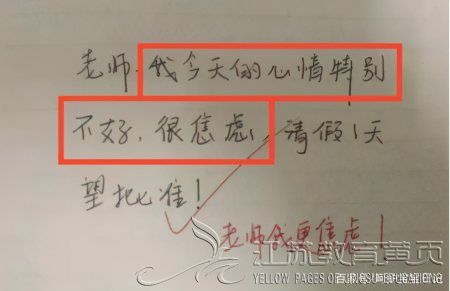 老师，我今天的心情特别
不好，很焦虑，请假1天
望批准！
老师我更焦虑！
江苏教育黄页
YELLOW PAGES OF JIANGSU EDUCATION